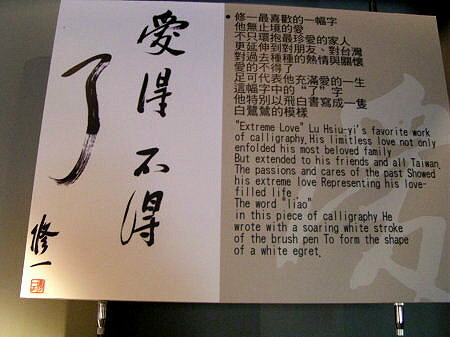 愛得不得
了
修一
• 修一最喜歡的一幅字
他無止境的愛
不只環抱最珍愛的家人
更延伸到對朋友、對台灣
對過去種種的熱情與關懷
愛的不得了
足可代表他充滿愛的一生
這幅字中的“了”字
他特別以飛白書寫成一隻
白鷺鷥的模樣
"Extreme Love" Lu Hsiu-yi's favorite work
of calligraphy.His limitless love not only
enfolded his most beloved family
But extended to his friends and all Taiwan.
The passions and cares of the past Showed
his extreme love Representing his love-
filled life
The word "liao"
in this piece of calligraphy He
wrote with a soaring white stroke
of the brush pen To form the shape
of a white egret.
愛